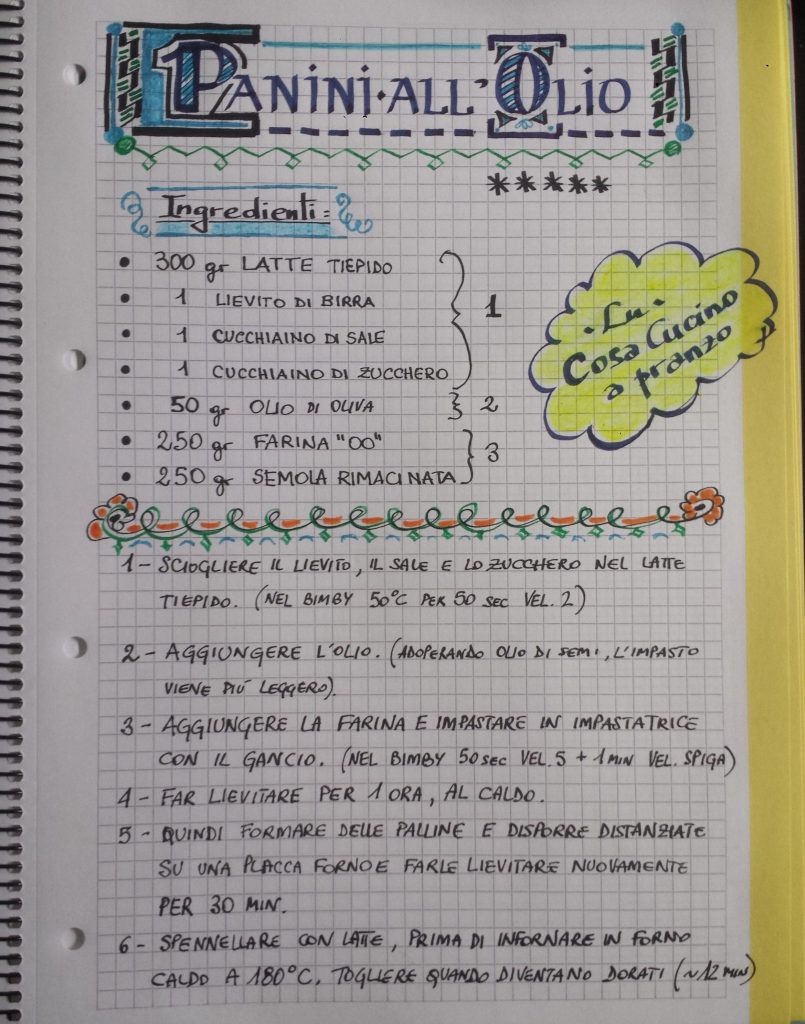 PANINI·ALL'OLIO
*****
Ingredienti:
• 300 gr LATTE TIEPIDO
• 1 LIEVITO DI BIRRA
• 1 CUCCHIAINO DI SALE
• 1 CUCCHIAINO DI ZUCCHERO
1
• 50 gr OLIO DI OLIVA
2
• 250 gr FARINA "00"
• 250 gr SEMOLA RIMACINATA
3
·Lu·
Cosa Cucino
a pranzo
1- SCIOGLIERE IL LIEVITO, IL SALE E LO ZUCCHERO NEL LATTE
TIEPIDO. (NEL BIMBY 50°C PER 50 SEC VEL. 2)
2- AGGIUNGERE L'OLIO. (ADOPERANDO OLIO DI SEMI, L'IMPASTO
VIENE PIÚ LEGGERO).
3- AGGIUNGERE LA FARINA E IMPASTARE IN IMPASTATRICE
CON IL GANCIO. (NEL BIMBY 50 SEC VEL. 5 + 1 MIN VEL. SPIGA)
4- FAR LIEVITARE PER 1 ORA, AL CALDO.
5- QUINDI FORMARE DELLE PALLINE E DISPORRE DISTANZIATE
SU UNA PLACCA FORNO E FARLE LIEVITARE NUOVAMENTE
PER 30 MIN.
6- SPENNELLARE CON LATTE, PRIMA DI INFORNARE IN FORNO
CALDO A 180°C. TOGLIERE QUANDO DIVENTANO DORATI (~12 MIN)